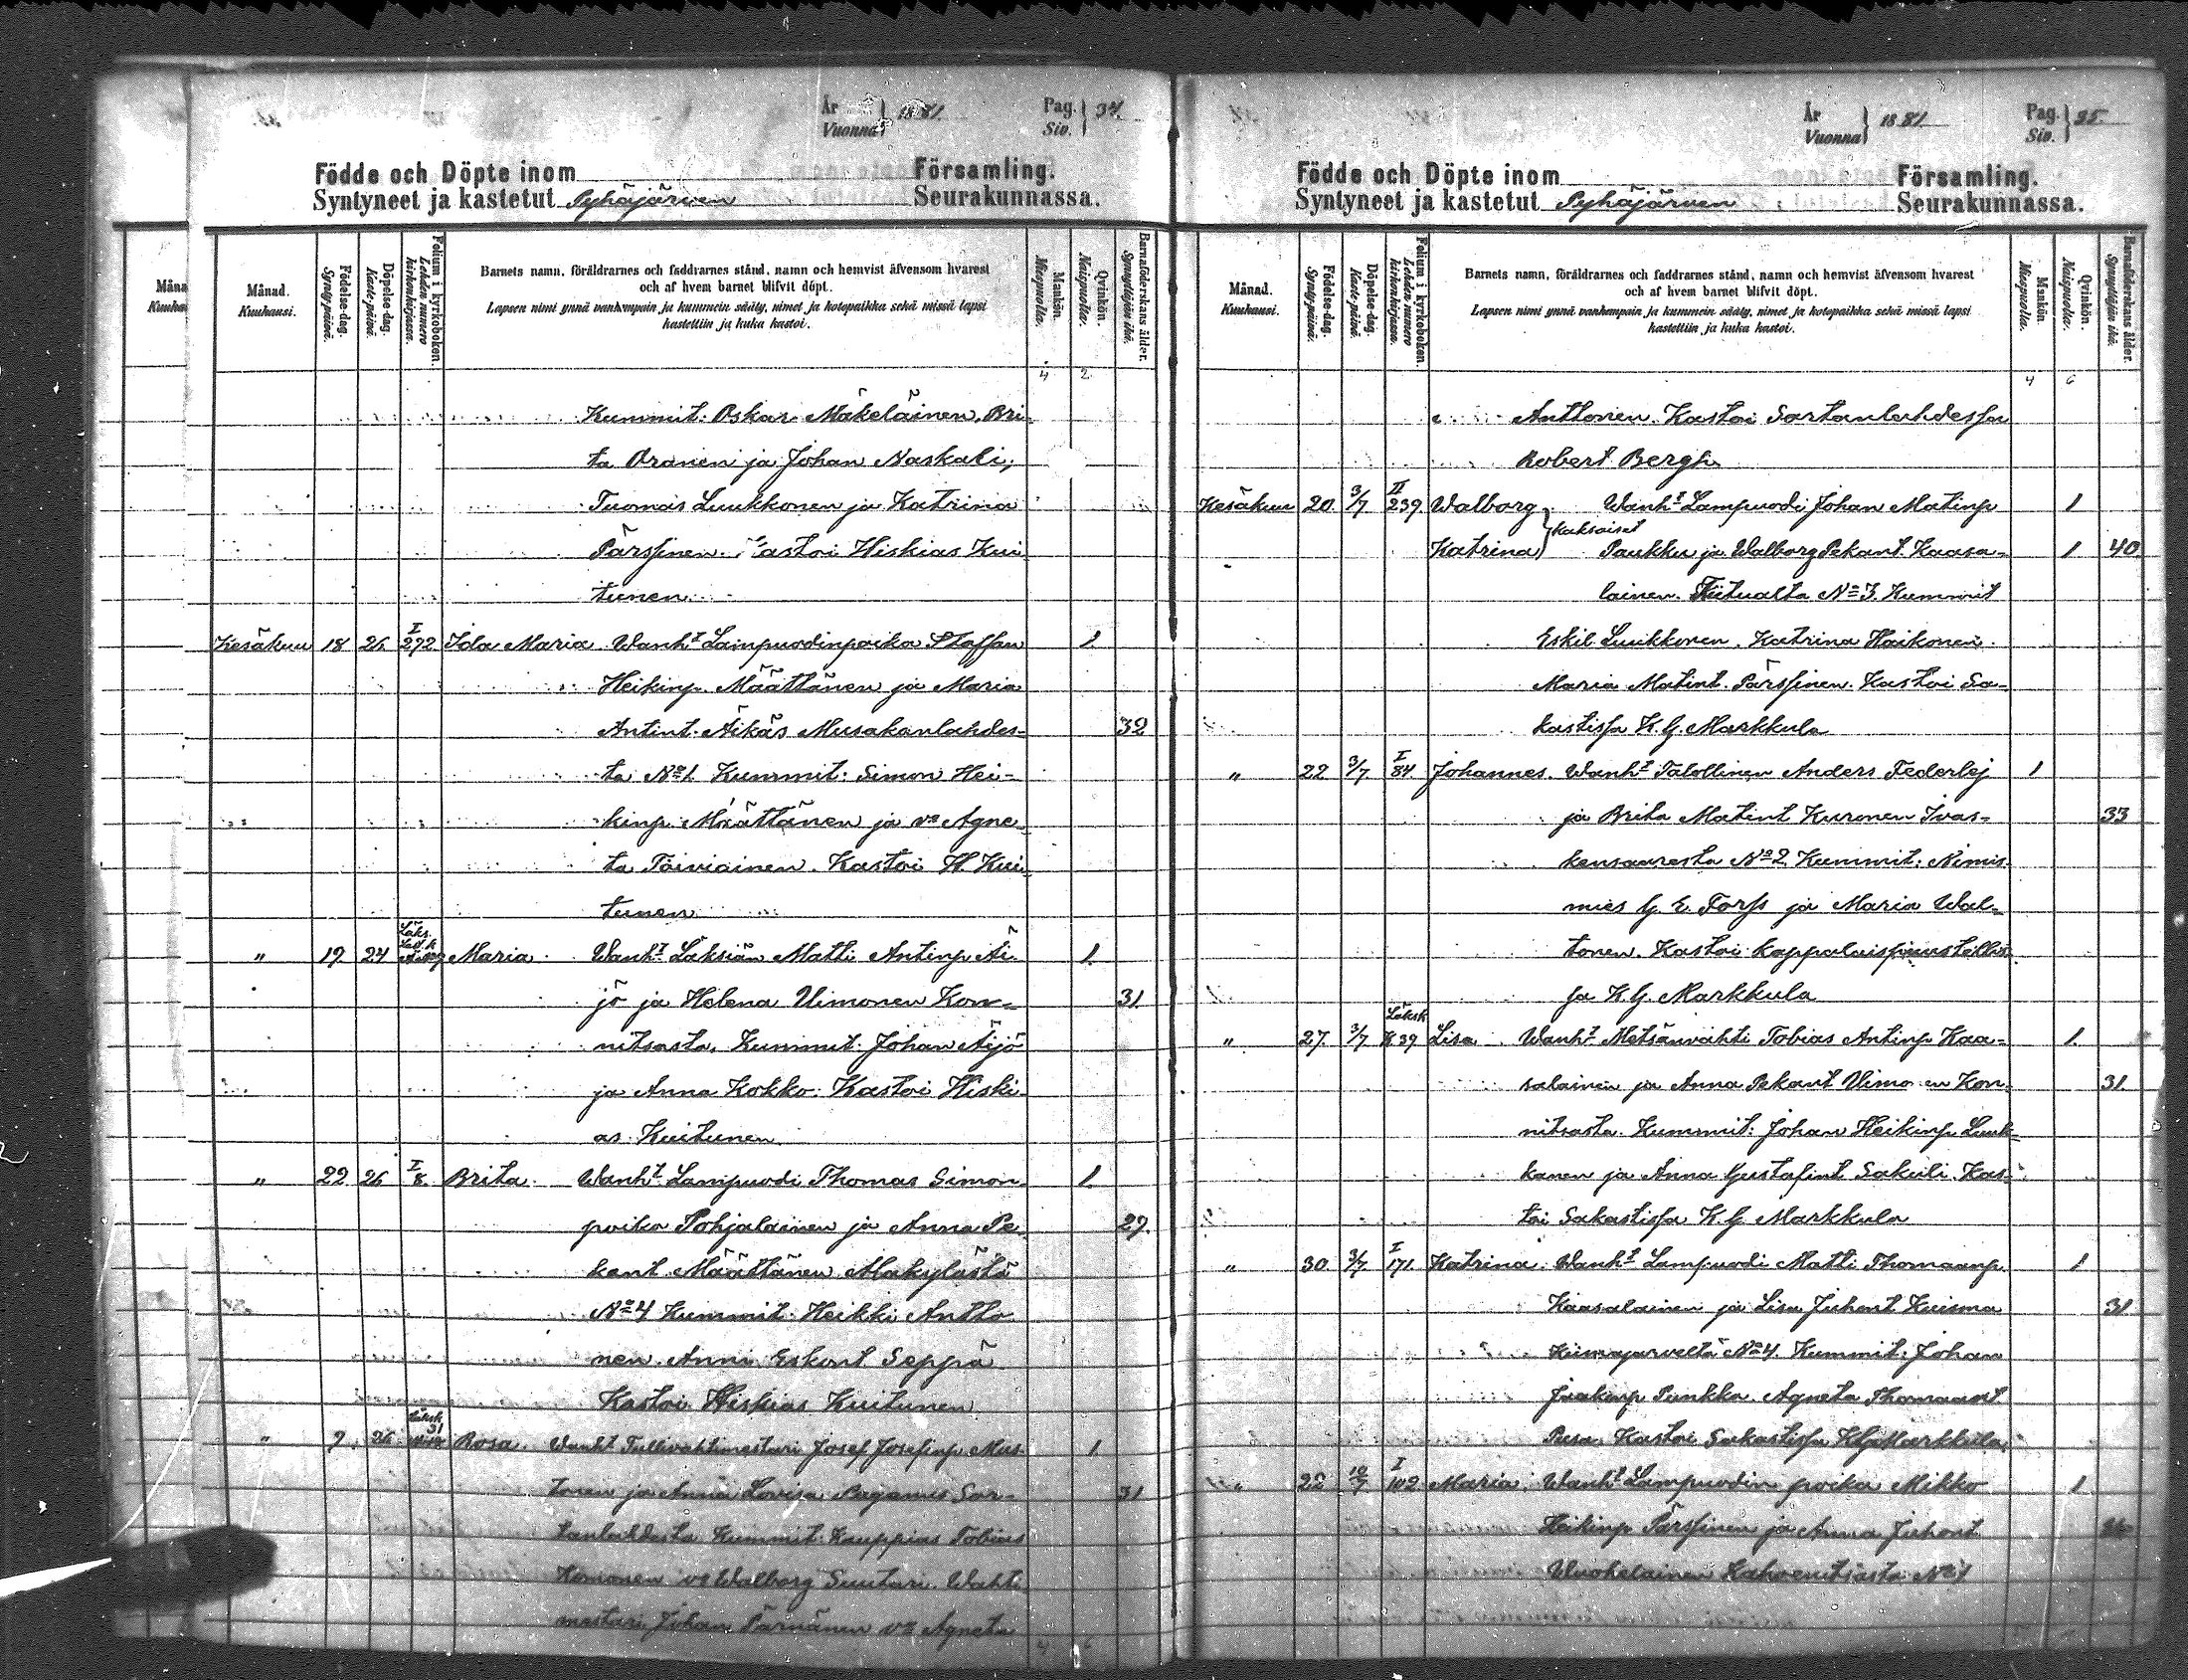 År
Vuonna } 1881.
Pag.
Siv. } 34.
Födde och Döpte inom Församling.
Syntyneet ja kastetut Pyhäjärven Seurakunnassa.
Månad.
Kuukausi.
Födelse-dag.
Synty-päivä.
Döpelse-dag.
Kaste-päivä.
Folium i kyrkoboken.
Lehden numero kirkonkirjassa.
Barnets namn, föräldrarnes och faddrarnes stånd, namn och hemvist äfvensom hvarest
och af hvem barnet blifvit döpt.
Lapsen nimi ynnä vanhempain ja kummein sääty, nimet ja kotopaikka sekä missä lapsi
kastettiin ja kuka kastoi.
Mankön.
Miespuolia.
Qvinkön.
Naispuolia.
Barnaföderskans ålder.
Synnyttäjän ikä.
4 2
Kummit: Oskar Mäkeläinen, Bri-
ta Oranen ja Johan Naskali;
Tuomas Luukkonen ja Katrina
Pärssinen. Kastoi Hiskias Kui-
tunen.
Kesäkuu 18 26 I 272 Ida Maria Wanht Lampuodinpoika Staffan 1
Heikinp. Määttänen ja Maria
Antint. Äikäs Musakanlahdes- 32
ta No 1. Kummit: Simon Hei-
kinp. Määttänen ja vo Agne-
ta Toiviainen. Kastoi H. Kui-
tunen
" 19 24 Maria Wanht Läksiän Matti Antinp Äi- 1
jö ja Helena Uimonen Kon- 31
nitsasta. Kummit: Johan Äijö
ja Anna Kokko. Kastoi Hiski-
as Kuitunen.
" 22 26 I 8. Brita Wanht Lampuodi Thomas Simon- 1
poika Pohjalainen ja Anna Pe- 29
kant. Määttänen Makylästä
No 4 Kummit: Heikki Antto-
nen. Anni Eskont Seppä
Kastoi Hiskias Kuitunen
" 9 26 31 Rosa. Wanht Tullivahtimestari Josef Josefinp Mus- 1
tonen ja Anna Lovisa Paganus Sor- 31
tanlahdesta Kummit: Kauppias Tobias
Komonen vo Walborg Suutari. Wahti-
mestari Johan Pärnänen vo Agneta
4 6
År
Vuonna } 1881.
Pag.
Siv. } 35.
Födde och Döpte inom Församling.
Syntyneet ja kastetut Pyhäjärven Seurakunnassa.
Månad.
Kuukausi.
Födelse-dag.
Synty-päivä.
Döpelse-dag.
Kaste-päivä.
Folium i kyrkoboken.
Lehden numero kirkonkirjassa.
Barnets namn, föräldrarnes och faddrarnes stånd, namn och hemvist äfvensom hvarest
och af hvem barnet blifvit döpt.
Lapsen nimi ynnä vanhempain ja kummein sääty, nimet ja kotopaikka sekä missä lapsi
kastettiin ja kuka kastoi.
Mankön.
Miespuolia.
Qvinkön.
Naispuolia.
Barnaföderskans ålder.
Synnyttäjän ikä.
4 6
Anttonen. Kastoi Sortanlahdessa
Robert Bergh.
Kesäkuu 20 3/7 II 239. Walborg Wanht Lampuodi Johan Matinp 1
kaksoiset
Katrina Paukku ja Walborg Pekant. Kaasa- 1 40
lainen. Tiitualta No 3. Kummit
Eskil Luukkonen. Katrina Haikonen.
Maria Matint. Pärssinen. Kastoi Sa-
kastissa K. G. Markkula
" 22 3/7 I 84. Johannes. Wanht Talollinen Anders Federlej 1
ja Brita Matint Kuronen Ivas- 33
kensaaresta No 2 Kummit: Nimis-
mies G. E. Forss ja Maria Wal-
tonen. Kastoi kappalaispuustellis-
sa K. G. Markkula
" 27 3/7 Läksk K39 Lisa Wanht Metsänvahti Tobias Antinp Kaa- 1
salainen ja Anna Pekant Uimonen Kon- 31
nitsasta. Kummit: Johan Heikinp Luuk-
kanen ja Anna Gustafint Sakuli. Kas-
toi Sakastissa K. G. Markkula
" 30 3/7 I 171. Katrina. Wanht Lampuodi Matti Thomaanp 1
Kaasalainen ja Lisa Juhont Kuisma 31
Kiimajarvelta No 4. Kummit: Johan
Jaakinp Punkka. Agneta Thomaant
Pusa. Kastoi Sakastissa K.G. Markkula
" 22 10/7 I 102 Maria Wanht Lampuodin poika Mikko 1
Heikinp Pärssinen ja Anna Juhont
Wuohelainen Kahvenitsasta No 1